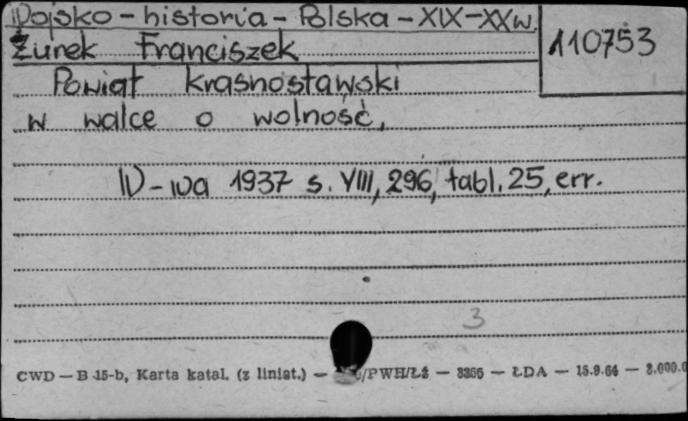 Wojsko - historia - Polska - XIX-XXw.
110753
Żurek Franciszek
Powiat krasnostawski
w walce o wolność,
W-wa 1937 s. VIII, 296, tabl. 25, err.
3
CWD — B 15-b, Karta katal. (z liniat.) — /PWH/Łż — 3355 — ŁDA — 15.9.64 —